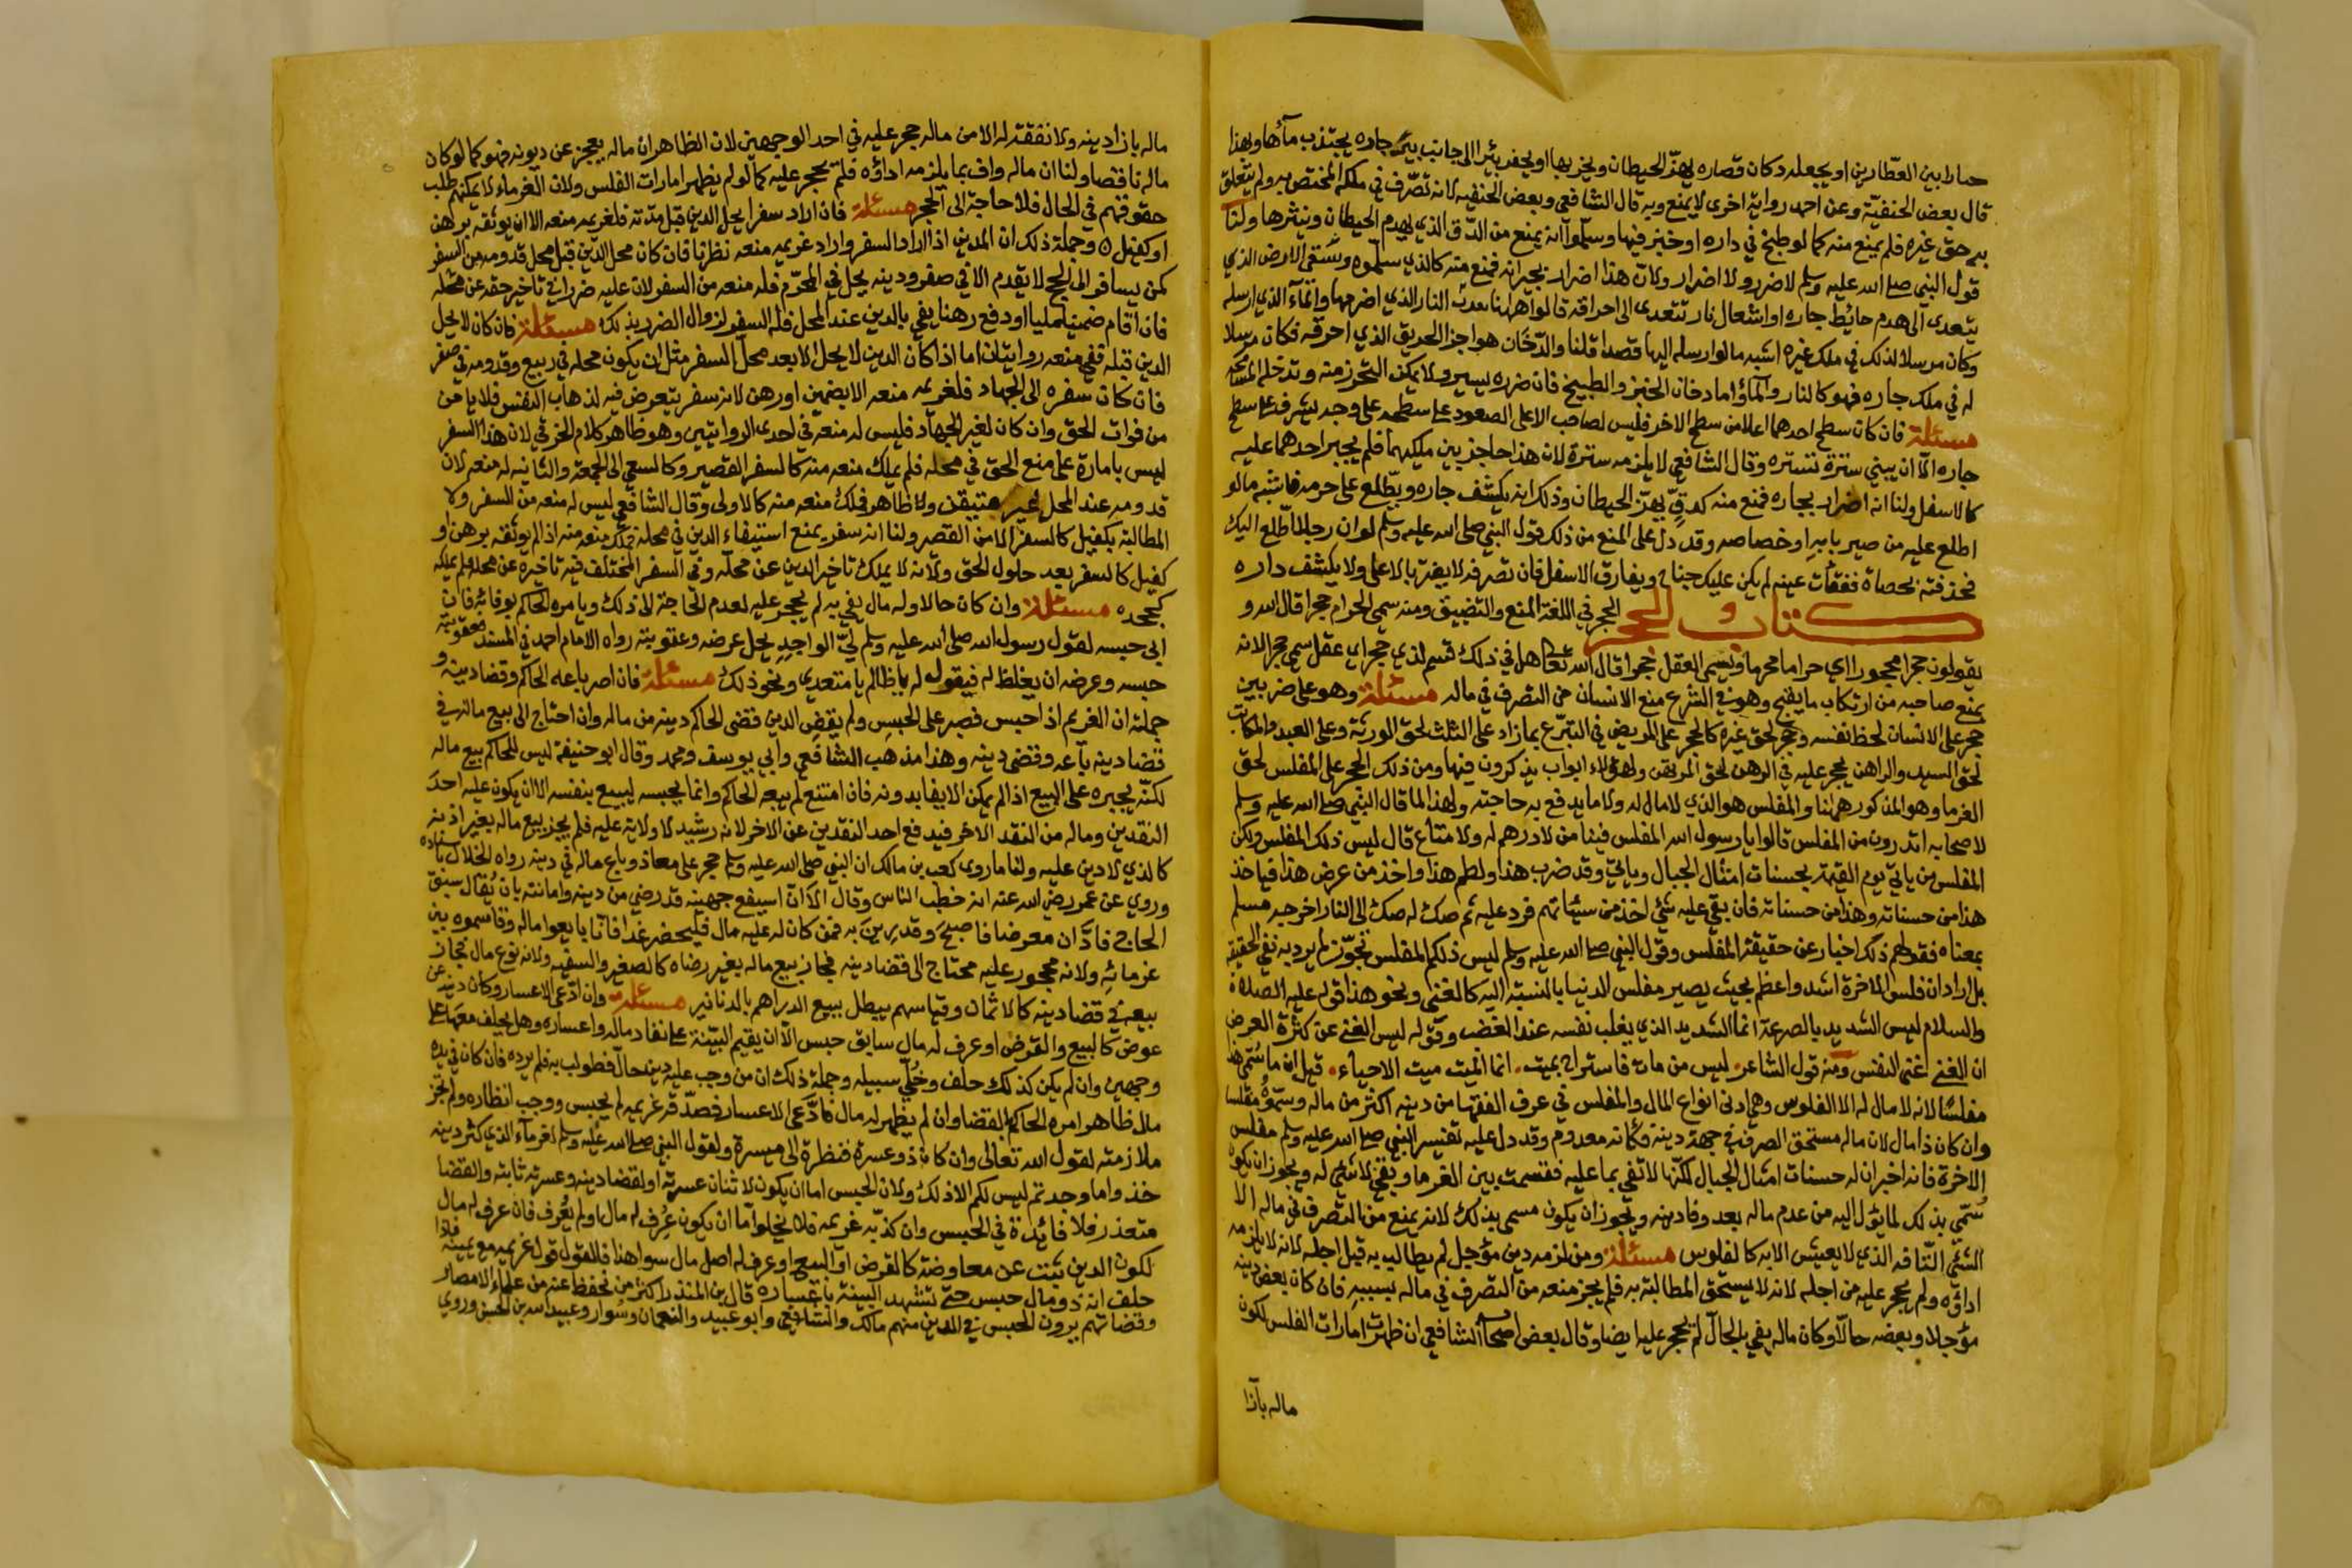 حمارا بين العطارين او يجعله دكان قصاره يهز الحيطان ويخربها او يحفر بئرا الى جانب بئر جاره يجتذب مآها وبهذا
قال بعض الحنفيّة وعن احمد رواية اخرى لا يمنع وبه قال الشافعي وبعض الحنفيه لانه تصّرف في ملكه المختص به ولم يتعلق
به حق غيره فلم يمنع منه كما لو طبخ في داره او خبز فيها وسلّموا انه يمنع من الدّق الذي يهدم الحيطان وينثرها ولنا
قول النبي صلى الله عليه وسلم لا ضرر ولا اضرار ولانّ هذا اضرار بجيرانه فمنع منه كالذي سلّموه وسَقْي الارض الذي
يتعدى الى هدم حايُط جاره او اشعال نار تتعدى الى احراقه قالوا هاهنا تعدت النار الذي اضرمها والمآء الذي ارسله
وكان مرسلا لذلك في ملك غيره اشبه ما لو ارسله اليها قصدا قلنا والدّخَان هو اجزا الحريق الذي احرقه فكان مرسلا
له في ملك جاره فهو كالنار والمآء اما دخان الخبز والطبيخ فان ضرره يسير ولا يمكن التحرز منه وتدخله المسامحه
مسئلة فان كان سطح احدهما اعلا من سطح الاخر فليس لصاحب الاعلى الصعود على سطحه على وجه يشرف على سطح
جاره الّا ان يبني سترة تستره وقال الشافعي لا يلزمه سترة لان هذا حاجز بين ملكيهما فلم يجبر احدهما عليه
كالاسفل ولنا انه اضرار بجاره فمنع منه كدقٍّ يهزّ الحيطان وذلك انه يكشف جاره ويطّلع على حرمه فاشبه ما لو
اطلع عليه من صير بابه او خصاصه وقد دل على المنع من ذلك قول النبي صلى الله عليه وسلم لو ان رجلا اطّلع اليك
فخذفته بحصاة ففقأت عينه لم يكن عليك جناح ويفارق الاسفل فان تصرفه لا يضر بالاعلى ولا يكشف داره
كتاب الحجر الحجر في اللغة المنع والتضييق ومنه سمي الحرام حجرا قال الله و
يقولون حجرا محجورا اي حراما محرما ويسمى العقل حجرا قال الله تعالى هل في ذلك قسم لذي حجر اي عقل سمي حجرا لانه
يمنع صاحبه من ارتكاب ما يقبح وهو في الشرع منع الانسان من التصرف في ماله مسئلة وهو على ضربين
حجر على الانسان لحظ نفسه وحجر لحق غيره كالحجر على المريض في التبرّع بما زاد على الثلث لحق الورثة وعلى العبد والمكاتب
لحق السيد والراهن يحجر عليه في الرهن لحق المرتهن ولهؤلاء ابواب يذكرون فيها ومن ذلك الحجر على المفلس لحق
الغرما وهو المذكور هاهنا والمفلس هو الذي لا مال له ولا ما يدفع به حاجته ولهذا لما قال النبي صلى الله عليه وسلم
لاصحابه اتدرون من المفلس قالوا يا رسول الله المفلس فينا من لا درهم له ولا متاع قال ليس ذلك المفلس ولكن
المفلس من ياتي يوم القيمة بحسنات امثال الجبال وياتي وقد ضرب هذا ولطم هذا واخذ من عرض هذا فياخذ
هذا من حسناته وهذا من حسناته فان بقي عليه شئ اخذ من سيئاتهم فرد عليه ثم صك له صك الى النار اخرجه مسلم
بمعناه فقولهم ذلك اخبار عن حقيقة المفلس وقول النبي صلى الله عليه وسلم ليس ذلكم المفلس تجوّز لم يرد به نفي الحقيقه
بل اراد ان فلس الاخرة اشد واعظم بحيث يصير مفلس الدنيا بالنسبة اليه كالغني ونحو هذا قوله عليه الصلاة
والسلام ليس الشديد بالصرعة انما الشديد الذي يغلب نفسه عند الغضب وقوله ليس الغنى عن كثرة العرض
ان الغنى غنى النفس ومنه قول الشاعر ليس من مات فاستراح بميت انما الميت ميت الاحياء قيل ان ما سُمّي هذا
مفلسًا لانه لا مال له الا الفلوس وهي ادنى انواع المال والمفلس في عرف الفقها من دينه اكثر من ماله وسمّوهُ مفلسا
وان كان ذا مال لان ماله مستحق الصرف في جهة دينه فكأنه معدوم وقد دل عليه تفسير النبي صلى الله عليه وسلم مفلس
الاخرة فانه اخبر ان له حسنات امثال الجبال لكنها لا تفي بما عليه فقسمت بين الغرما وبقي لا شئ له ويجوز ان يكون
سُمّي بذلك لما يؤل اليه من عدم ماله بعد وفا دينه ويجوز ان يكون مسمى بذلك لانه يمنع من التصرف في ماله الا
الشئ التّافه الذي لا يعيش الا به كالفلوس مسئلة ومن لزمه دين مؤجل لم يطالب به قبل اجله لانه لا يلزمه
اداؤه ولم يحجر عليه من اجله لانه لا يستحق المطالبة به فلم يجز منعه من التصرف في ماله بسببه فان كان بعض دينه
مؤجلا وبعضه حالّا وكان ماله يفي بالحالّ لم يحجر عليه ايضا وقال بعض اصحاب الشافعي ان ظهرت امارات الفلس لكون
ماله بآزا
ماله بازا دينه ولا نفقة له الا من ماله حجر عليه في احد الوجهين لان الظاهر ان ماله يعجز عن ديونه فهو كما لو كان
ماله ناقصا ولنا ان ماله واف بما يلزمه اداؤه فلم يحجر عليه كما لو لم يظهر امارات الفلس ولان الغرماء لا يمكنهم طلب
حقوقهم في الحال فلا حاجة الى الحجر مسئلة فان اراد سفرا يحل الدين قبل مدّته فلغريمه منعه الا ان يوثقه برهن
او كفيل وجملة ذلك ان المدين اذا اراد السفر واراد غريمه منعه نظرنا فان كان محل الدّين قبل محل قدومه من السفر
كمن يسافر الى الحج لا يقدم الا في صفر ودينه يحل في المحرّم فله منعه من السفر لان عليه ضررا في تاخير حقه عن محلّه
فان اقام ضمينا مليا او دفع رهنا يفي بالدين عند المحل فله السفر لزوال الضرر بذلك مسئلة فان كان لا يحل
الدين قبله ففي منعه روايتان اما اذا كان الدين لا يحل الا بعد محلّ السفر مثل ان يكون محله في ربيع وقدومه في صفر
فان كان سفره الى الجهاد فلغريمه منعه الا بضمين او رهن لانه سفر يتعرض فيه لذهاب النفس فلا يامن
من فوات الحق وان كان لغير الجهاد فليس له منعه في احدى الروايتين وهو ظاهر كلام الخرقي لان هذا السفر
ليس بامارة على منع الحق في محله فلم يملك منعه منه كالسفر القصير وكالسعي الى الجمعة والثانيه له منعه لان
قدومه عند المحل غير متيقن ولا ظاهر فملك منعه منه كالاولى وقال الشافعي ليس له منعه من السفر ولا
المطالبة بكفيل كالسفر الامن القصير ولنا انه سفر يمنع استيفاء الدين في محله فملك منعه منه اذا لم يوثقه برهن او
كفيل كالسفر بعد حلول الحق ولانه لا يملك تاخير الدين عن محلّه وفي السفر المختلف فيه تاخيره عن محله فلم يملكه
كجحده مسئلة وان كان حالا وله مال يفي به لم يحجر عليه لعدم الحاجة الى ذلك ويامره الحاكم بوفائه فان
ابى حبسه لقول رسول الله صلى الله عليه وسلم ليّ الواجدِ يحل عرضه وعقوبته رواه الامام احمد في المسند فعقوبته
حبسه وعرضه ان يغلظ له فيقول له يا ظالم يا متعدي ونحو ذلك مسئلة فان اصر باعه الحاكم وقضا دينه و
جملته ان الغريم اذا حبس فصبر على الحبس ولم يقض الدين قضى الحاكم دينه من ماله وان احتاج الى بيع ماله في
قضا دينه باعه وقضى دينه وهذا مذهب الشافعي وابي يوسف ومحمد وقال ابو حنيفة ليس للحاكم بيع ماله
لكنّه يجبره على البيع اذا لم يمكن الايفا بدونه فان امتنع لم يبعه الحاكم وانما يحبسه ليبيع بنفسه الا ان يكون عليه احدَ
النقدين وماله من النقد الاخر فيدفع احد النقدين عن الاخر لانه رشيد لا ولاية عليه فلم يجز بيع ماله بغير اذنه
كالذي لا دين عليه ولنا ما روى كعب بن مالك ان النبي صلى الله عليه وسلم حجر على معاذ وباع ماله في دينه رواه الخلال باسناده
وروي عن عمر رضي الله عنه انه خطب الناس وقال الا انّ اسيفع جهينه قد رضي من دينه وامانته بان يُقال سبق
الحاج فادّان معرضا فاصبح وقد رين به فمن كان له عليه مال فليحضر غدا فانّا بايعوا ماله وقاسموه بين
غرمائِهِ ولانه محجور عليه محتاج الى قضا دينه فجاز بيع ماله بغير رضاه كالصغير والسفيه ولانه نوع مال فجاز
بيعه في قضا دينه كالاثمان وقياسهم يبطل ببيع الدراهم بالدنانير مسئلة وان ادّعى الاعسار وكان دينه عن
عوض كالبيع والقرض او عرف له مال سابق حبس الّا ان يقيم البيّنة على نفاد ماله واعساره وهل يحلف معها على
وجهين وان لم يكن كذلك حلف وخُلّي سبيله وجملة ذلك ان من وجب عليه دين حالّ فطولب به فلم يرده فان كان في يده
مال ظاهر امره الحاكم بالقضا وان لم يظهر له مال فادّعى الاعسار فصدّقه غريمه لم يحبس ووجب انظاره ولم تجز
ملازمته لقول الله تعالى وان كان ذو عسرة فنظرة الى ميسرة ولقول النبي صلى الله عليه وسلم لغرمآء الذي كثر دينه
خذوا ما وجدتم ليس لكم الا ذلك ولان الحبس اما ان يكون لاثبات عسرته او لقضا دينه وعسرته ثابتة والقضا
متعذر فلا فائدة في الحبس وان كذّبه غريمه فلا يخلوا اما ان يكون عُرِف له مال او لم يُعرف فان عرف له مال
لكون الدين ثبت عن معاوضة كالقرض او البيع او عرف له اصل مال سوا هذا فالقول قول غريمه مع يمينه فاذا
حلف انه ذو مال حبس حتى تشهد البينة باعساره قال بن المنذر اكثر من نحفظ عنه من علماء الامصار
وقضاتهم يرون الحبس في الدين منهم مالك والشافعي وابو عبيد والنعمان وسُوار وعبيد الله بن الحسن وروي